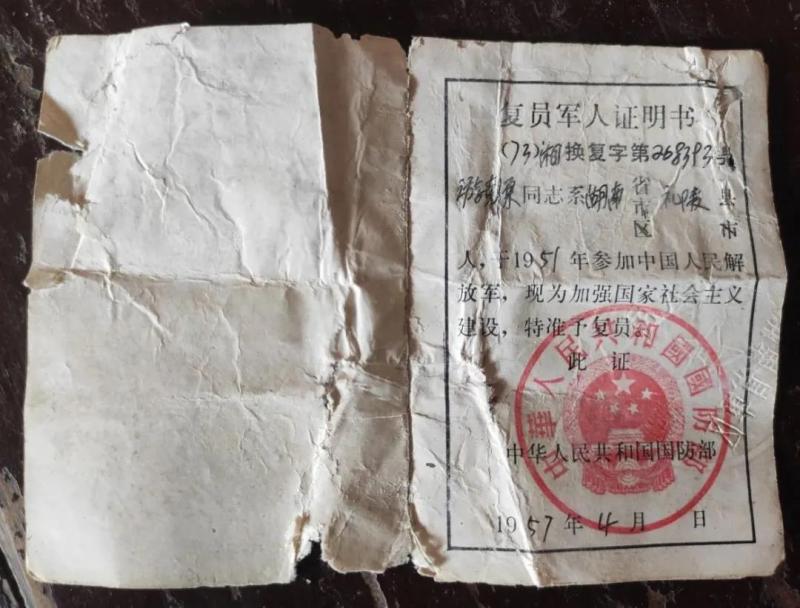 复员军人证明书
(73)湘换复字第268393号
同志系湖南省市区礼陵县市
人，于1951年参加中国人民解
放军，现为加强国家社会主义
建设，特准予复员。
此 证
中华人民共和国国防部
1957年4月 日
中華人民共和國國防部